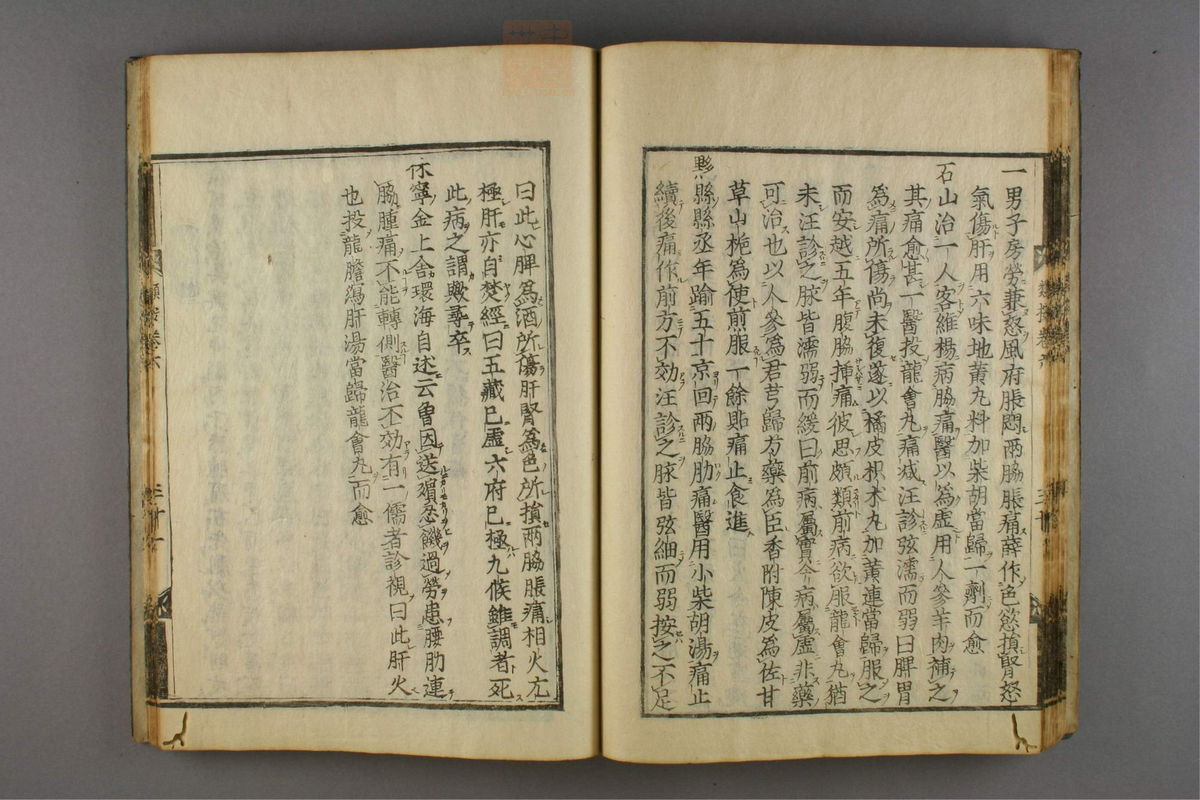 一男子房勞兼怒風府脹悶兩脇脹痛薛作色慾損腎怒
氣傷肝用六味地黄丸料加柴胡當歸一劑而愈
石山治一人客維楊病脇痛醫以爲虛用人參羊肉補之
其痛愈甚一醫投龍會丸痛减汪診弦濡而弱曰脾胃
爲痛所傷尚未復遂以橘皮枳术丸加黄連當歸服之
而安越五年腹脇挿痛彼思頗類前病欲服龍會丸猶
未汪診之脉皆濡弱而緩曰前病屬實今病屬虛非藥
可治也以人參爲君芎歸芍藥爲臣香附陳皮爲佐甘
草山梔爲使煎服一餘貼痛止食進
黟縣縣丞年踰五十京回兩脇肋痛醫用小柴胡湯痛止
續後痛作前方不効汪診之脉皆弦細而弱按之不足
曰此心脾爲酒所傷肝腎爲色所損兩脇脹痛相火亢
極肝亦自焚經曰五藏已虛六府已極九候雖調者死
此病之謂歟尋卒
休寧金上舍環海自述云曾因送殯忍饑過勞患腰肋連
脇腫痛不能轉側醫治不効有一儒者診視曰此肝火
也投龍膽瀉肝湯當歸龍會丸而愈
類按卷六
三十一